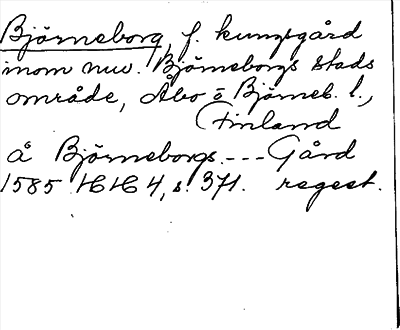 Björneborg, f. kungsgård
inom nuv. Björneborgs stads
område, Åbo o Björneb. l.,
(Finland
å Björneborgs --- Gård
1585 HH 4, s. 371. regest.